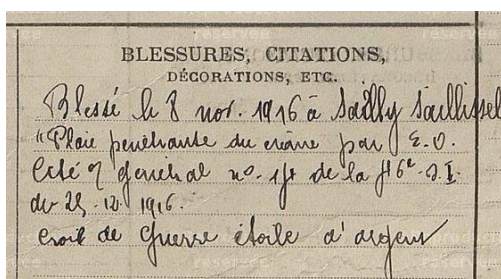 BLESSURES, CITATIONS,
DÉCORATIONS, ETC.
Blessé le 8 nov. 1916 à Sailly Saillisel
"Plaie penétrante du crâne par E.O.
Cité général no. de la D.I.
du 25. 12. 1916.
Croix de Guerre étoile d'argent